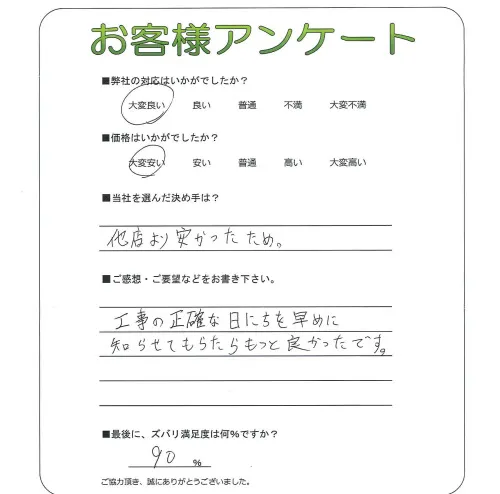 お客様アンケート
■弊社の対応はいかがでしたか？
大変良い 良い 普通 不満 大変不満
■価格はいかがでしたか？
大変安い 安い 普通 高い 大変高い
■当社を選んだ決め手は？
他店より安かったため。
■ご感想・ご要望などをお書き下さい。
工事の正確な日にちを早めに
知らせてもらたらもっと良かったです。
■最後に、ズバリ満足度は何%ですか？
90 %
ご協力頂き、誠にありがとうございました。